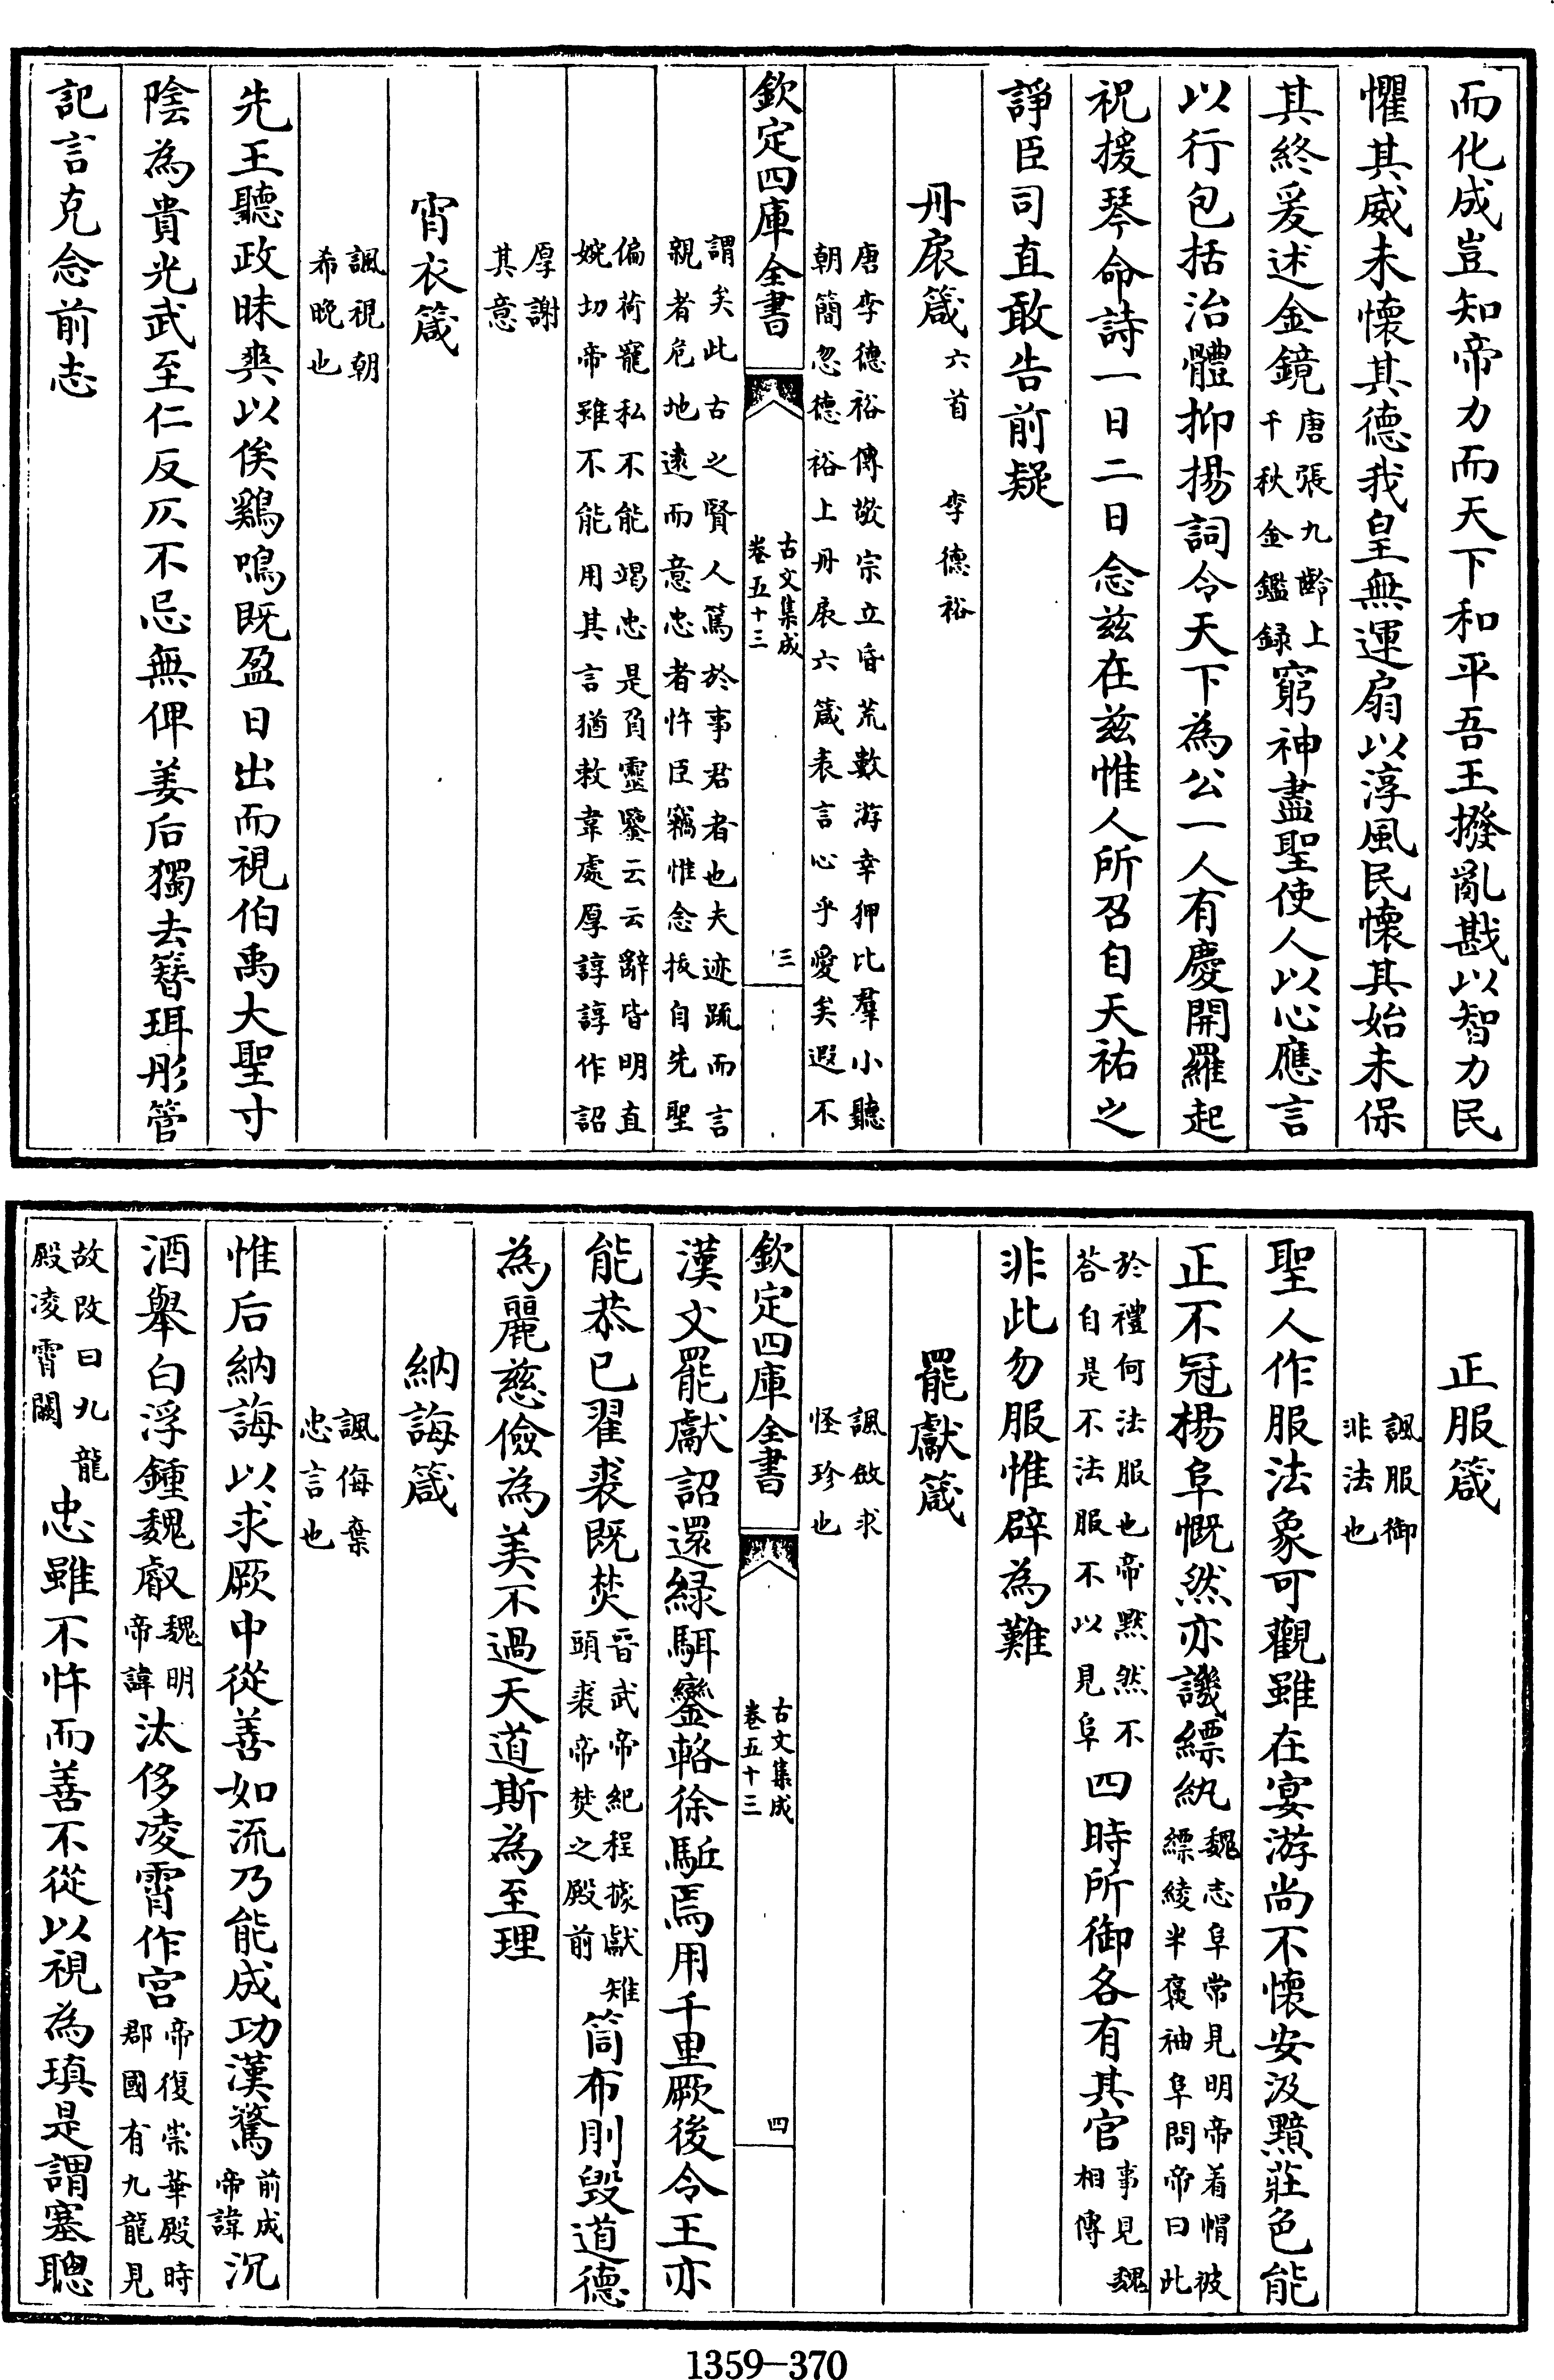 而化成豈知帝力而天下和平吾王撥亂戡以智力民
懼其威未懷其德我皇無運扇以淳風民懷其始未保
其終爰述金鏡唐張九齡上千秋金鑑録窮神盡聖使人以心應言
以行包括治體抑揚詞令天下為公一人有慶開羅起
祝援琴命詩一日二日念兹在兹惟人所召自天祐之
諍臣司直敢告前疑
丹扆箴六首 李德裕
唐李德裕傳敬宗立昏荒數游幸狎比羣小聽
朝簡忽德裕上丹扆六箴表言心乎愛矣遐不
欽定四庫全書 古文集成卷五十三 三
謂矣此古之賢人篤於事君者也夫迹疏而言
親者危地遠而意忠者忤臣竊惟念拔自先聖
偏荷寵私不能竭忠是負靈鑒云云辭皆明直
婉切帝雖不能用其言猶敕韋處厚諄諄作詔
厚謝
其意
宵衣箴
諷視朝
希晚也
先王聽政昧爽以俟鷄鳴既盈日出而視伯禹大聖寸
陰為貴光武至仁反仄不忌無俾姜后獨去簪珥彤管
記言克念前志
正服箴
諷服御
非法也
聖人作服法象可觀雖在宴游尚不懷安汲黯莊色能
正不冠楊阜慨然亦譏縹紈魏志阜常見明帝着㡌被縹綾半褎袖阜問帝曰此
於禮何法服也帝默然不荅自是不法服不以見阜四時所御各有其官事見魏相傳
非此勿服惟辟為難
罷獻箴
諷斂求
怪珍也
欽定四庫全書 古文集成卷五十三 四
漢文罷獻詔還緑駬鑾輅徐駈焉用千里厥後令王亦
能恭已翟裘既焚晋武帝紀程據獻雉頭裘帝焚之殿前筒布則毁道德
為麗慈儉為美不過天道斯為至理
納誨箴
諷侮棄
忠言也
惟后納誨以求厥中從善如流乃能成功漢驁前成帝諱沉
酒舉白浮鍾魏叡魏明帝諱汰侈凌霄作宫帝復崇華殿時郡國有九龍見
故改曰九龍殿凌霄闕忠雖不忤而善不從以視為瑱是謂塞聰
1359—370